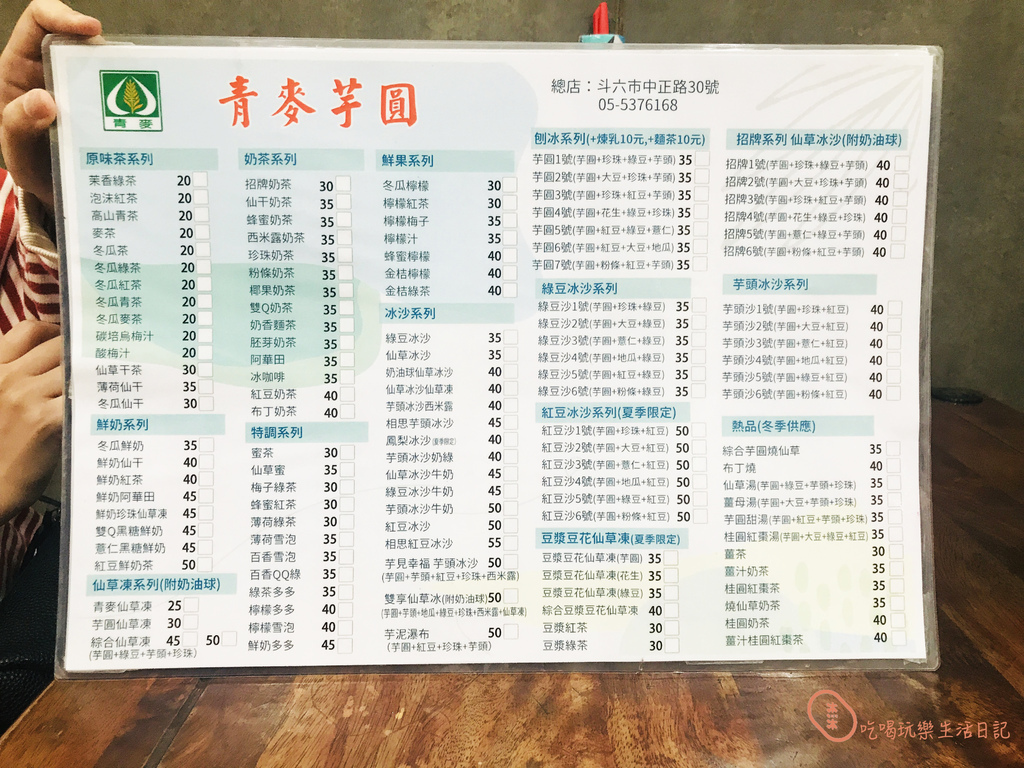 青麥
青麥芋圓
總店：斗六市中正路30號
05-5376168
原味茶系列
茉香綠茶 20
泡沫紅茶 20
高山青茶 20
麥茶 20
冬瓜茶 20
冬瓜綠茶 20
冬瓜紅茶 20
冬瓜青茶 20
冬瓜麥茶 20
碳培烏梅汁 20
酸梅汁 20
仙草干茶 30
薄荷仙干 35
冬瓜仙干 30
鮮奶系列
冬瓜鮮奶 35
鮮奶仙干 40
鮮奶紅茶 40
鮮奶阿華田 45
鮮奶珍珠仙草凍 45
雙Q黑糖鮮奶 45
薏仁黑糖鮮奶 45
紅豆鮮奶茶 50
仙草凍系列(附奶油球)
青麥仙草凍 25
芋圓仙草凍 30
綜合仙草凍 45 50
(芋圓+綠豆+芋頭+珍珠)
奶茶系列
招牌奶茶 30
仙干奶茶 35
蜂蜜奶茶 35
西米露奶茶 35
珍珠奶茶 35
粉條奶茶 35
椰果奶茶 35
雙Q奶茶 35
奶香麵茶 35
胚芽奶茶 35
阿華田 35
冰咖啡 35
紅豆奶茶 40
布丁奶茶 40
特調系列
蜜茶 30
仙草蜜 35
梅子綠茶 30
蜂蜜紅茶 30
薄荷綠茶 30
薄荷雪泡 35
百香雪泡 35
百香QQ綠 35
綠茶多多 35
檸檬多多 40
檸檬雪泡 40
鮮奶多多 45
鮮果系列
冬瓜檸檬 30
檸檬紅茶 30
檸檬梅子 35
檸檬汁 35
蜂蜜檸檬 40
金桔檸檬 40
金桔綠茶 40
冰沙系列
綠豆冰沙 35
仙草冰沙 35
奶油球仙草冰沙 40
仙草冰沙仙草凍 40
芋頭冰沙西米露 40
相思芋頭冰沙 45
鳳梨冰沙(夏季限定) 40
芋頭冰沙奶綠 40
仙草冰沙牛奶 45
綠豆冰沙牛奶 45
芋頭冰沙牛奶 50
紅豆冰沙 50
相思紅豆冰沙 55
芋見幸福 芋頭冰沙 50
(芋圓+芋頭+紅豆+珍珠+西米露)
雙享仙草冰(附奶油球) 50
(芋圓+芋頭+地瓜+綠豆+珍珠+西米露+仙草凍)
芋泥瀑布 50
(芋圓+紅豆+珍珠+芋頭)
刨冰系列(+煉乳10元,+麵茶10元)
芋圓1號(芋圓+珍珠+綠豆+芋頭) 35
芋圓2號(芋圓+大豆+珍珠+芋頭) 35
芋圓3號(芋圓+珍珠+紅豆+芋頭) 35
芋圓4號(芋圓+花生+綠豆+珍珠) 35
芋圓5號(芋圓+紅豆+綠豆+薏仁) 35
芋圓6號(芋圓+紅豆+大豆+地瓜) 35
芋圓7號(芋圓+粉條+紅豆+芋頭) 35
綠豆冰沙系列
綠豆沙1號(芋圓+珍珠+綠豆) 35
綠豆沙2號(芋圓+大豆+綠豆) 35
綠豆沙3號(芋圓+薏仁+綠豆) 35
綠豆沙4號(芋圓+地瓜+綠豆) 35
綠豆沙5號(芋圓+紅豆+綠豆) 35
綠豆沙6號(芋圓+粉條+綠豆) 35
紅豆冰沙系列(夏季限定)
紅豆沙1號(芋圓+珍珠+紅豆) 50
紅豆沙2號(芋圓+大豆+紅豆) 50
紅豆沙3號(芋圓+薏仁+紅豆) 50
紅豆沙4號(芋圓+地瓜+紅豆) 50
紅豆沙5號(芋圓+綠豆+紅豆) 50
紅豆沙6號(芋圓+粉條+紅豆) 50
豆漿豆花仙草凍(夏季限定)
豆漿豆花仙草凍(芋圓) 35
豆漿豆花仙草凍(花生) 35
豆漿豆花仙草凍(綠豆) 35
綜合豆漿豆花仙草凍 40
豆漿紅茶 30
豆漿綠茶 30
招牌系列 仙草冰沙(附奶油球)
招牌1號(芋圓+珍珠+綠豆+芋頭) 40
招牌2號(芋圓+大豆+珍珠+芋頭) 40
招牌3號(芋圓+珍珠+紅豆+芋頭) 40
招牌4號(芋圓+花生+綠豆+珍珠) 40
招牌5號(芋圓+薏仁+綠豆+芋頭) 40
招牌6號(芋圓+粉條+紅豆+芋頭) 40
芋頭冰沙系列
芋頭沙1號(芋圓+珍珠+紅豆) 40
芋頭沙2號(芋圓+大豆+紅豆) 40
芋頭沙3號(芋圓+薏仁+紅豆) 40
芋頭沙4號(芋圓+地瓜+紅豆) 40
芋頭沙5號(芋圓+綠豆+紅豆) 40
芋頭沙6號(芋圓+粉條+紅豆) 40
熱品(冬季供應)
綜合芋圓燒仙草 35
布丁燒 40
仙草湯(芋圓+綠豆+芋頭+珍珠) 35
薑母湯(芋圓+大豆+芋頭+珍珠) 35
芋圓甜湯(芋圓+紅豆+芋頭+珍珠) 35
桂圓紅棗湯(芋圓+大豆+綠豆+紅豆) 35
薑茶 30
薑汁奶茶 35
桂圓紅棗茶 35
燒仙草奶茶 35
桂圓奶茶 40
薑汁桂圓紅棗茶 40
吃喝玩樂生活日記